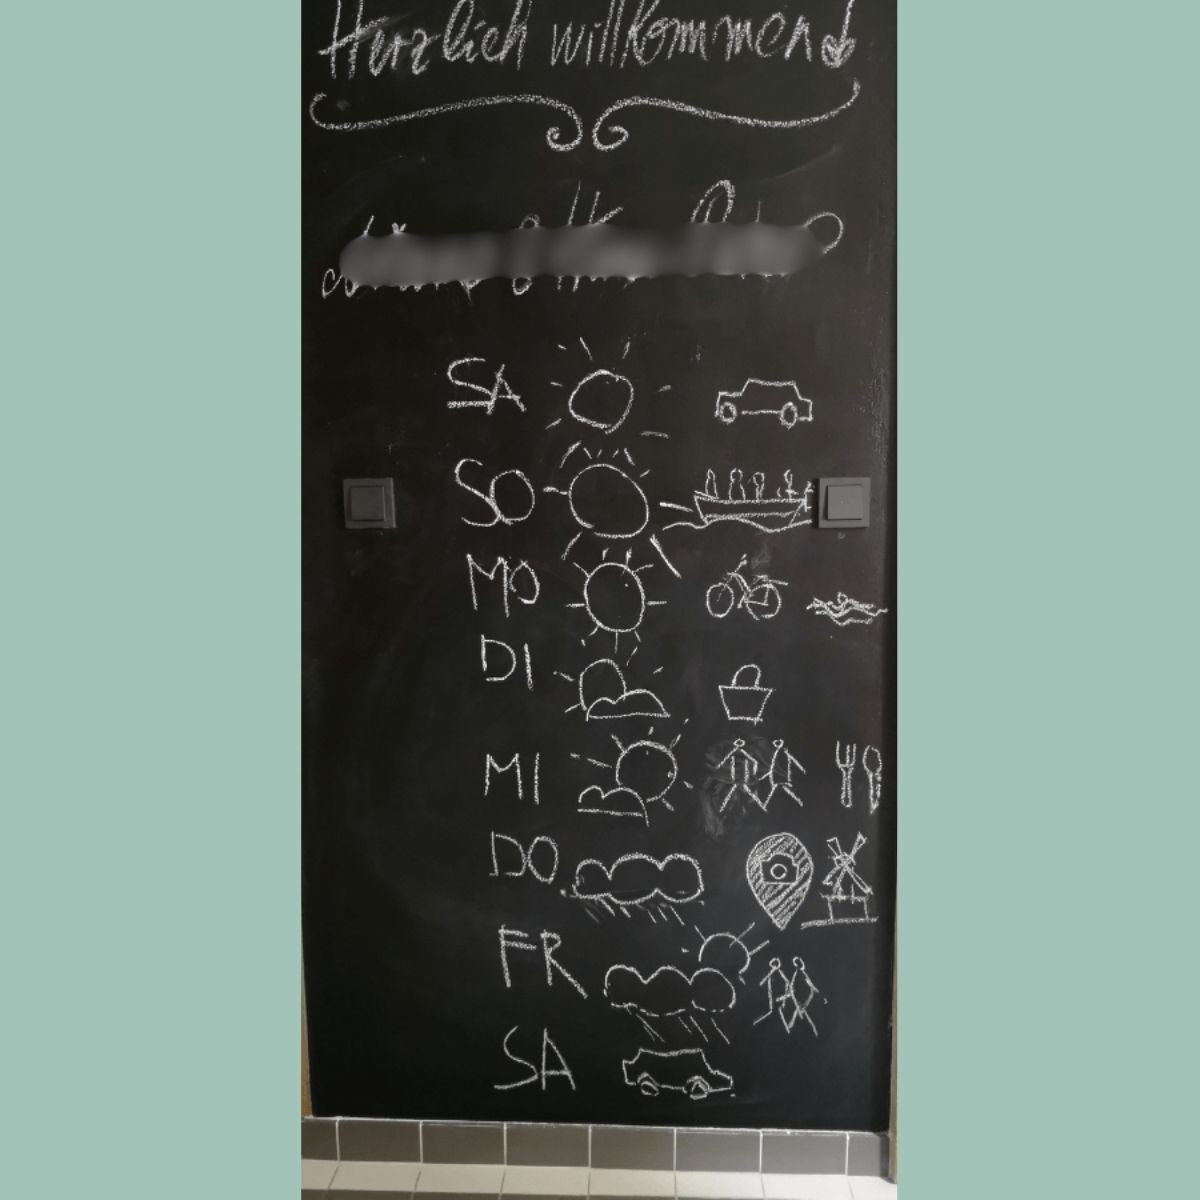 Herzlich willkommen
SA
SO
MO
DI
MI
DO
FR
SA